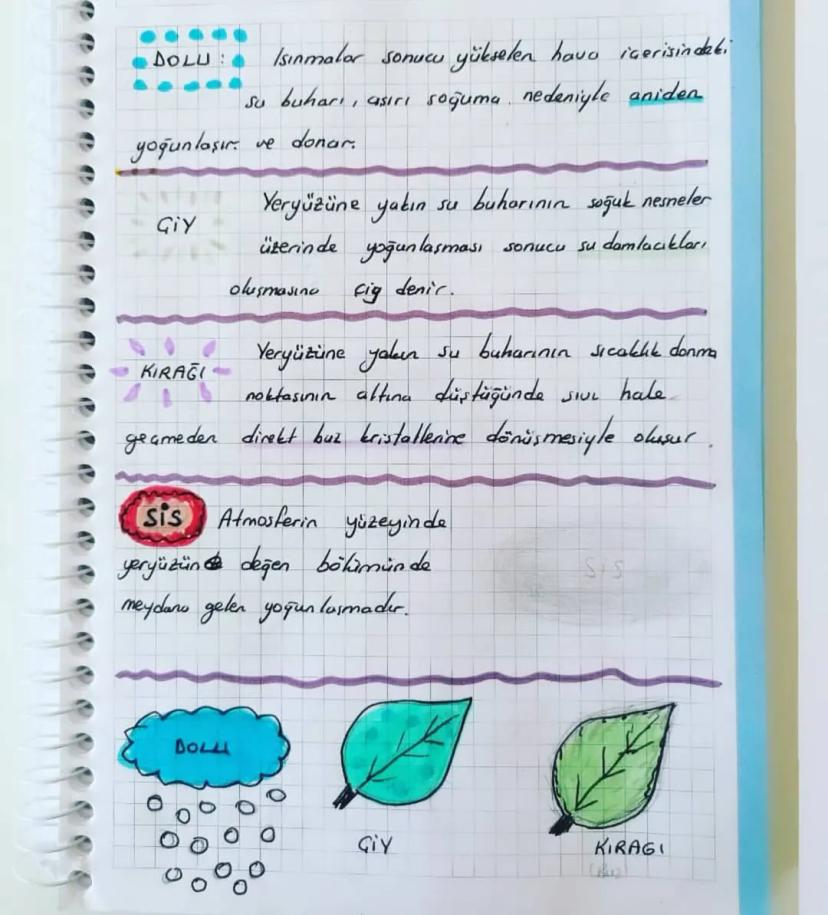 DOLU : Isınmalar sonucu yükselen hava içerisindeki
su buharı, aşırı soğuma nedeniyle aniden
yoğunlaşır ve donar.
ÇİY Yeryüzüne yakın su buharının soğuk nesneler
üzerinde yoğunlaşması sonucu su damlacıkları
oluşmasına çiğ denir.
KIRAĞI Yeryüzüne yakın su buharının sıcaklık donma
noktasının altına düştüğünde sıvı hale
geçmeden direkt buz kristallerine dönüşmesiyle oluşur.
SİS Atmosferin yüzeyinde
yeryüzüne değen bölümünde
meydana gelen yoğunlaşmadır.
SİS
DOLU
ÇİY
KIRAGI